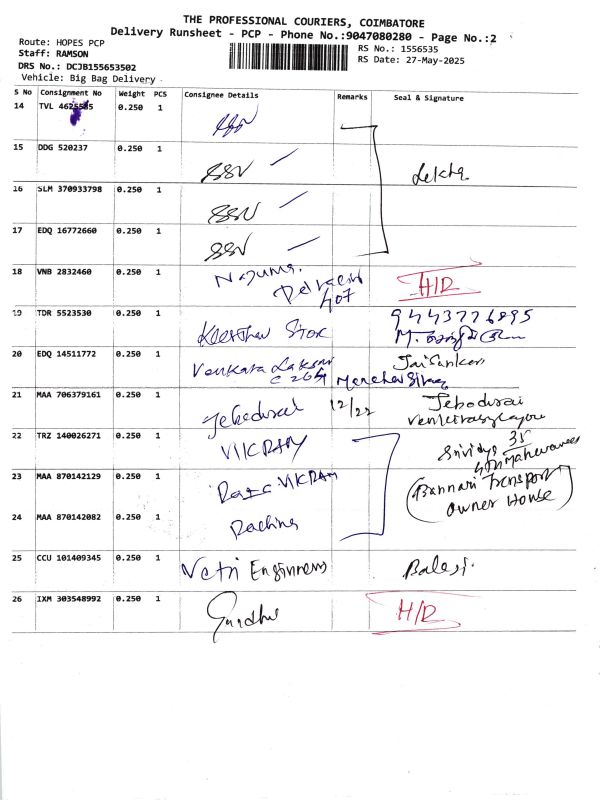 THE PROFESSIONAL COURIERS, COIMBATORE
Delivery Runsheet - PCP - Phone No.:9047080280 - Page No.:2
Route: HOPES PCP
Staff: RAMSON
DRS No.: DCJB155653502
Vehicle: Big Bag Delivery
RS No.: 1556535
RS Date: 27-May-2025
S No Consignment No Weight PCS Consignee Details Remarks Seal & Signature
14 TVL 0.250 1 SSV
15 DDG 520237 0.250 1 SSV
16 SLM 370933798 0.250 1 SSV
17 EDQ 16772660 0.250 1 SSV
Lekha
18 VNB 2832460 0.250 1 H/R
407
19 TDR 5523530 0.250 1 9443776895
20 EDQ 14511772 0.250 1 Jai Sankar
C 204
21 MAA 706379161 0.250 1 Jebadurai 12/22 Jebodurai
22 TRZ 140026271 0.250 1 VIKRAM Srividya 35
23 MAA 870142129 0.250 1 VIKRAM (Bannari Transport
Owner House)
24 MAA 870142082 0.250 1
25 CCU 101409345 0.250 1 Vetri Enginners Balaji.
26 IXM 303548992 0.250 1 H/R